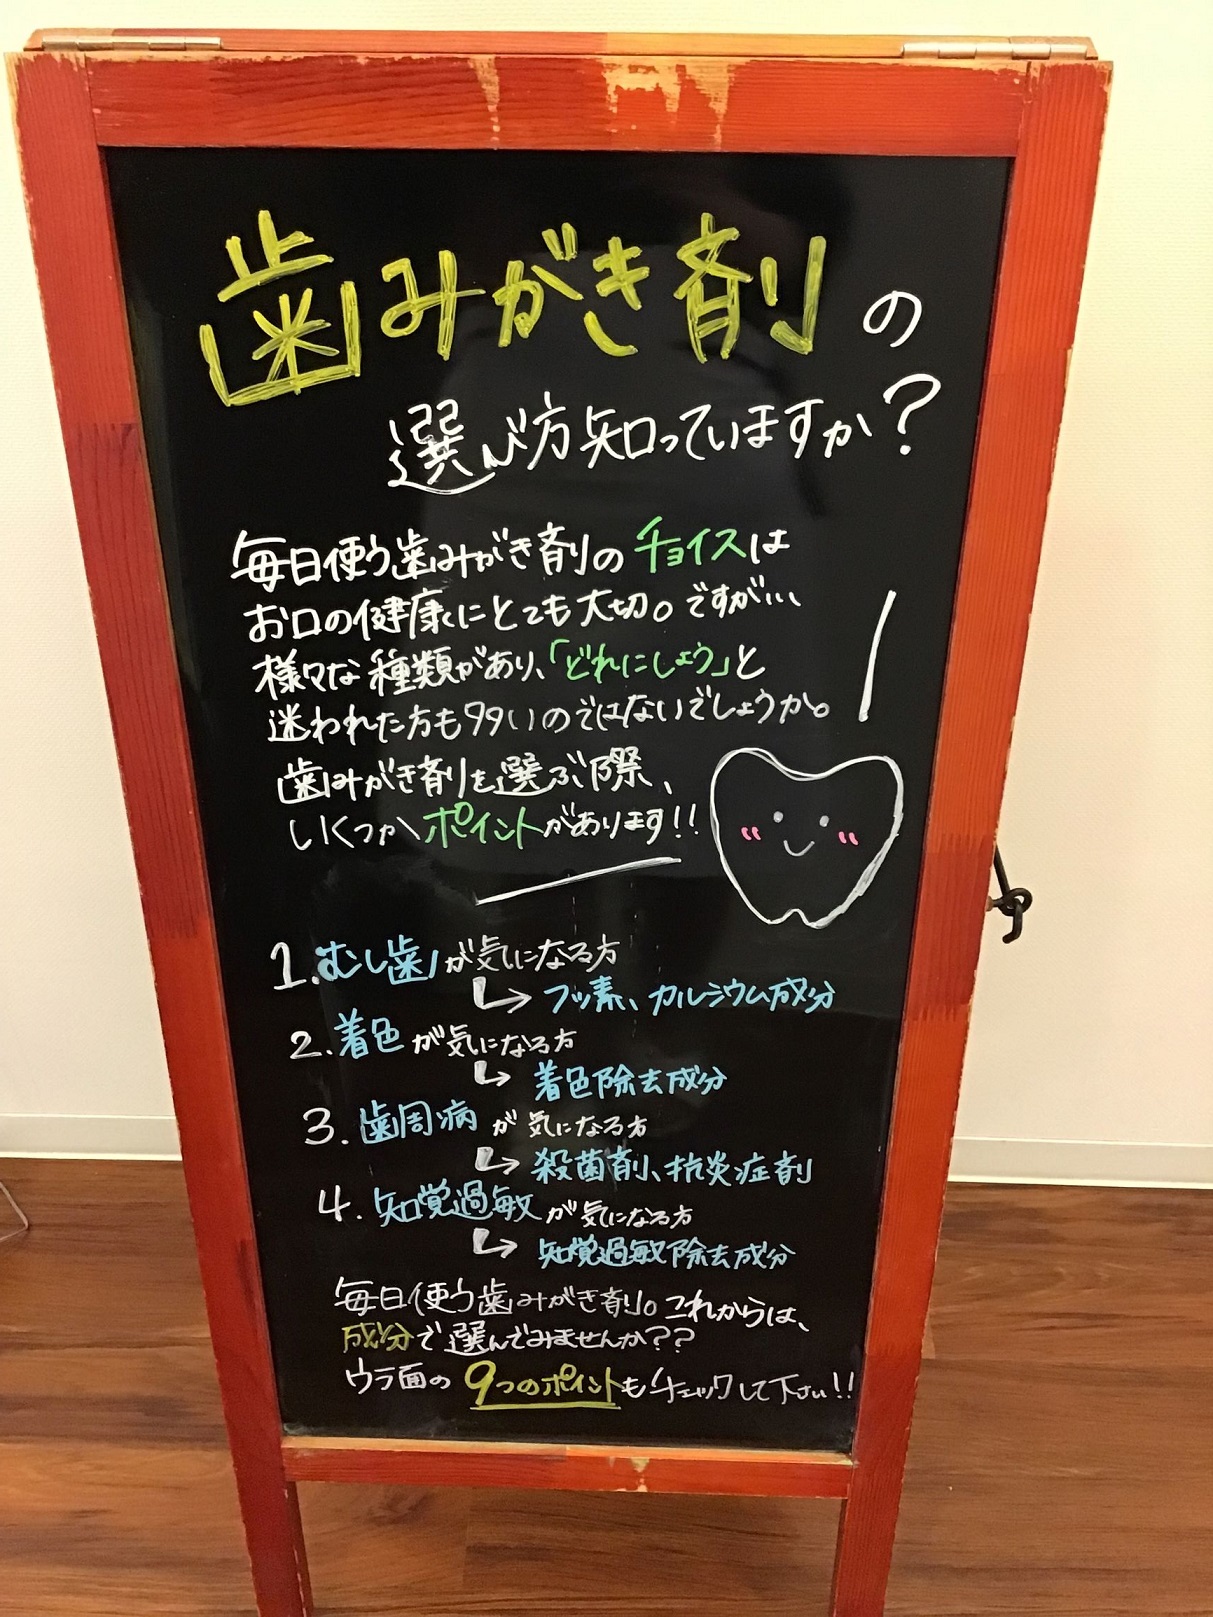 歯みがき剤の
選び方知っていますか?
毎日使う歯みがき剤のチョイスは
お口の健康にとても大切。ですが…
様々な種類があり、「どれにしよう」と
迷われた方も多いのではないでしょうか。
歯みがき剤を選ぶ際、
いくつかポイントがあります!!
1.むし歯が気になる方
↳フッ素、カルシウム成分
2.着色が気になる方
↳着色除去成分
3.歯周病が気になる方
↳殺菌剤、抗炎症剤
4.知覚過敏が気になる方
↳知覚過敏除去成分
毎日使う歯みがき剤。これからは、
成分で選んでみませんか??
ウラ面の9つのポイントもチェックして下さい!!